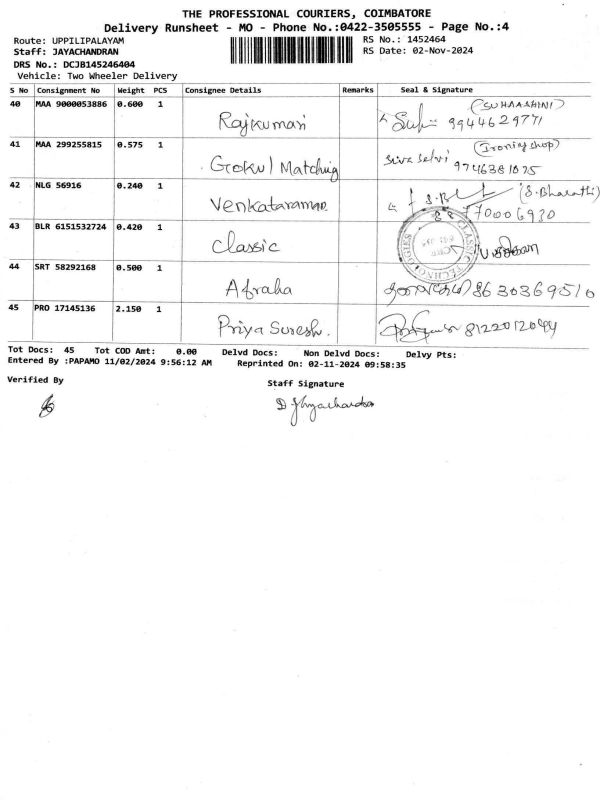 THE PROFESSIONAL COURIERS, COIMBATORE
Delivery Runsheet - MO - Phone No.:0422-3505555 - Page No.:4
Route: UPPILIPALAYAM
RS No.: 1452464
Staff: JAYACHANDRAN
RS Date: 02-Nov-2024
DRS No.: DCJB145246404
Vehicle: Two Wheeler Delivery
S No Consignment No Weight PCS Consignee Details Remarks Seal & Signature
40 MAA 9000053886 0.600 1 Rajkumari (SUHAASHINI) 9944629771
41 MAA 299255815 0.575 1 Gokul Matching Siva Selvi (Ironing shop) 9746381075
42 NLG 56916 0.240 1 Venkataraman (S.Bharathi) 770006930
43 BLR 6151532724 0.420 1 Classic
CLASSIC TECHNOLOGIES
44 SRT 58292168 0.500 1 Afraha 8630369510
45 PRO 17145136 2.150 1 Priya Suresh. 8122012044
Tot Docs: 45 Tot COD Amt: 0.00 Delvd Docs: Non Delvd Docs: Delvy Pts:
Entered By :PAPAMO 11/02/2024 9:56:12 AM Reprinted On: 02-11-2024 09:58:35
Verified By
Staff Signature